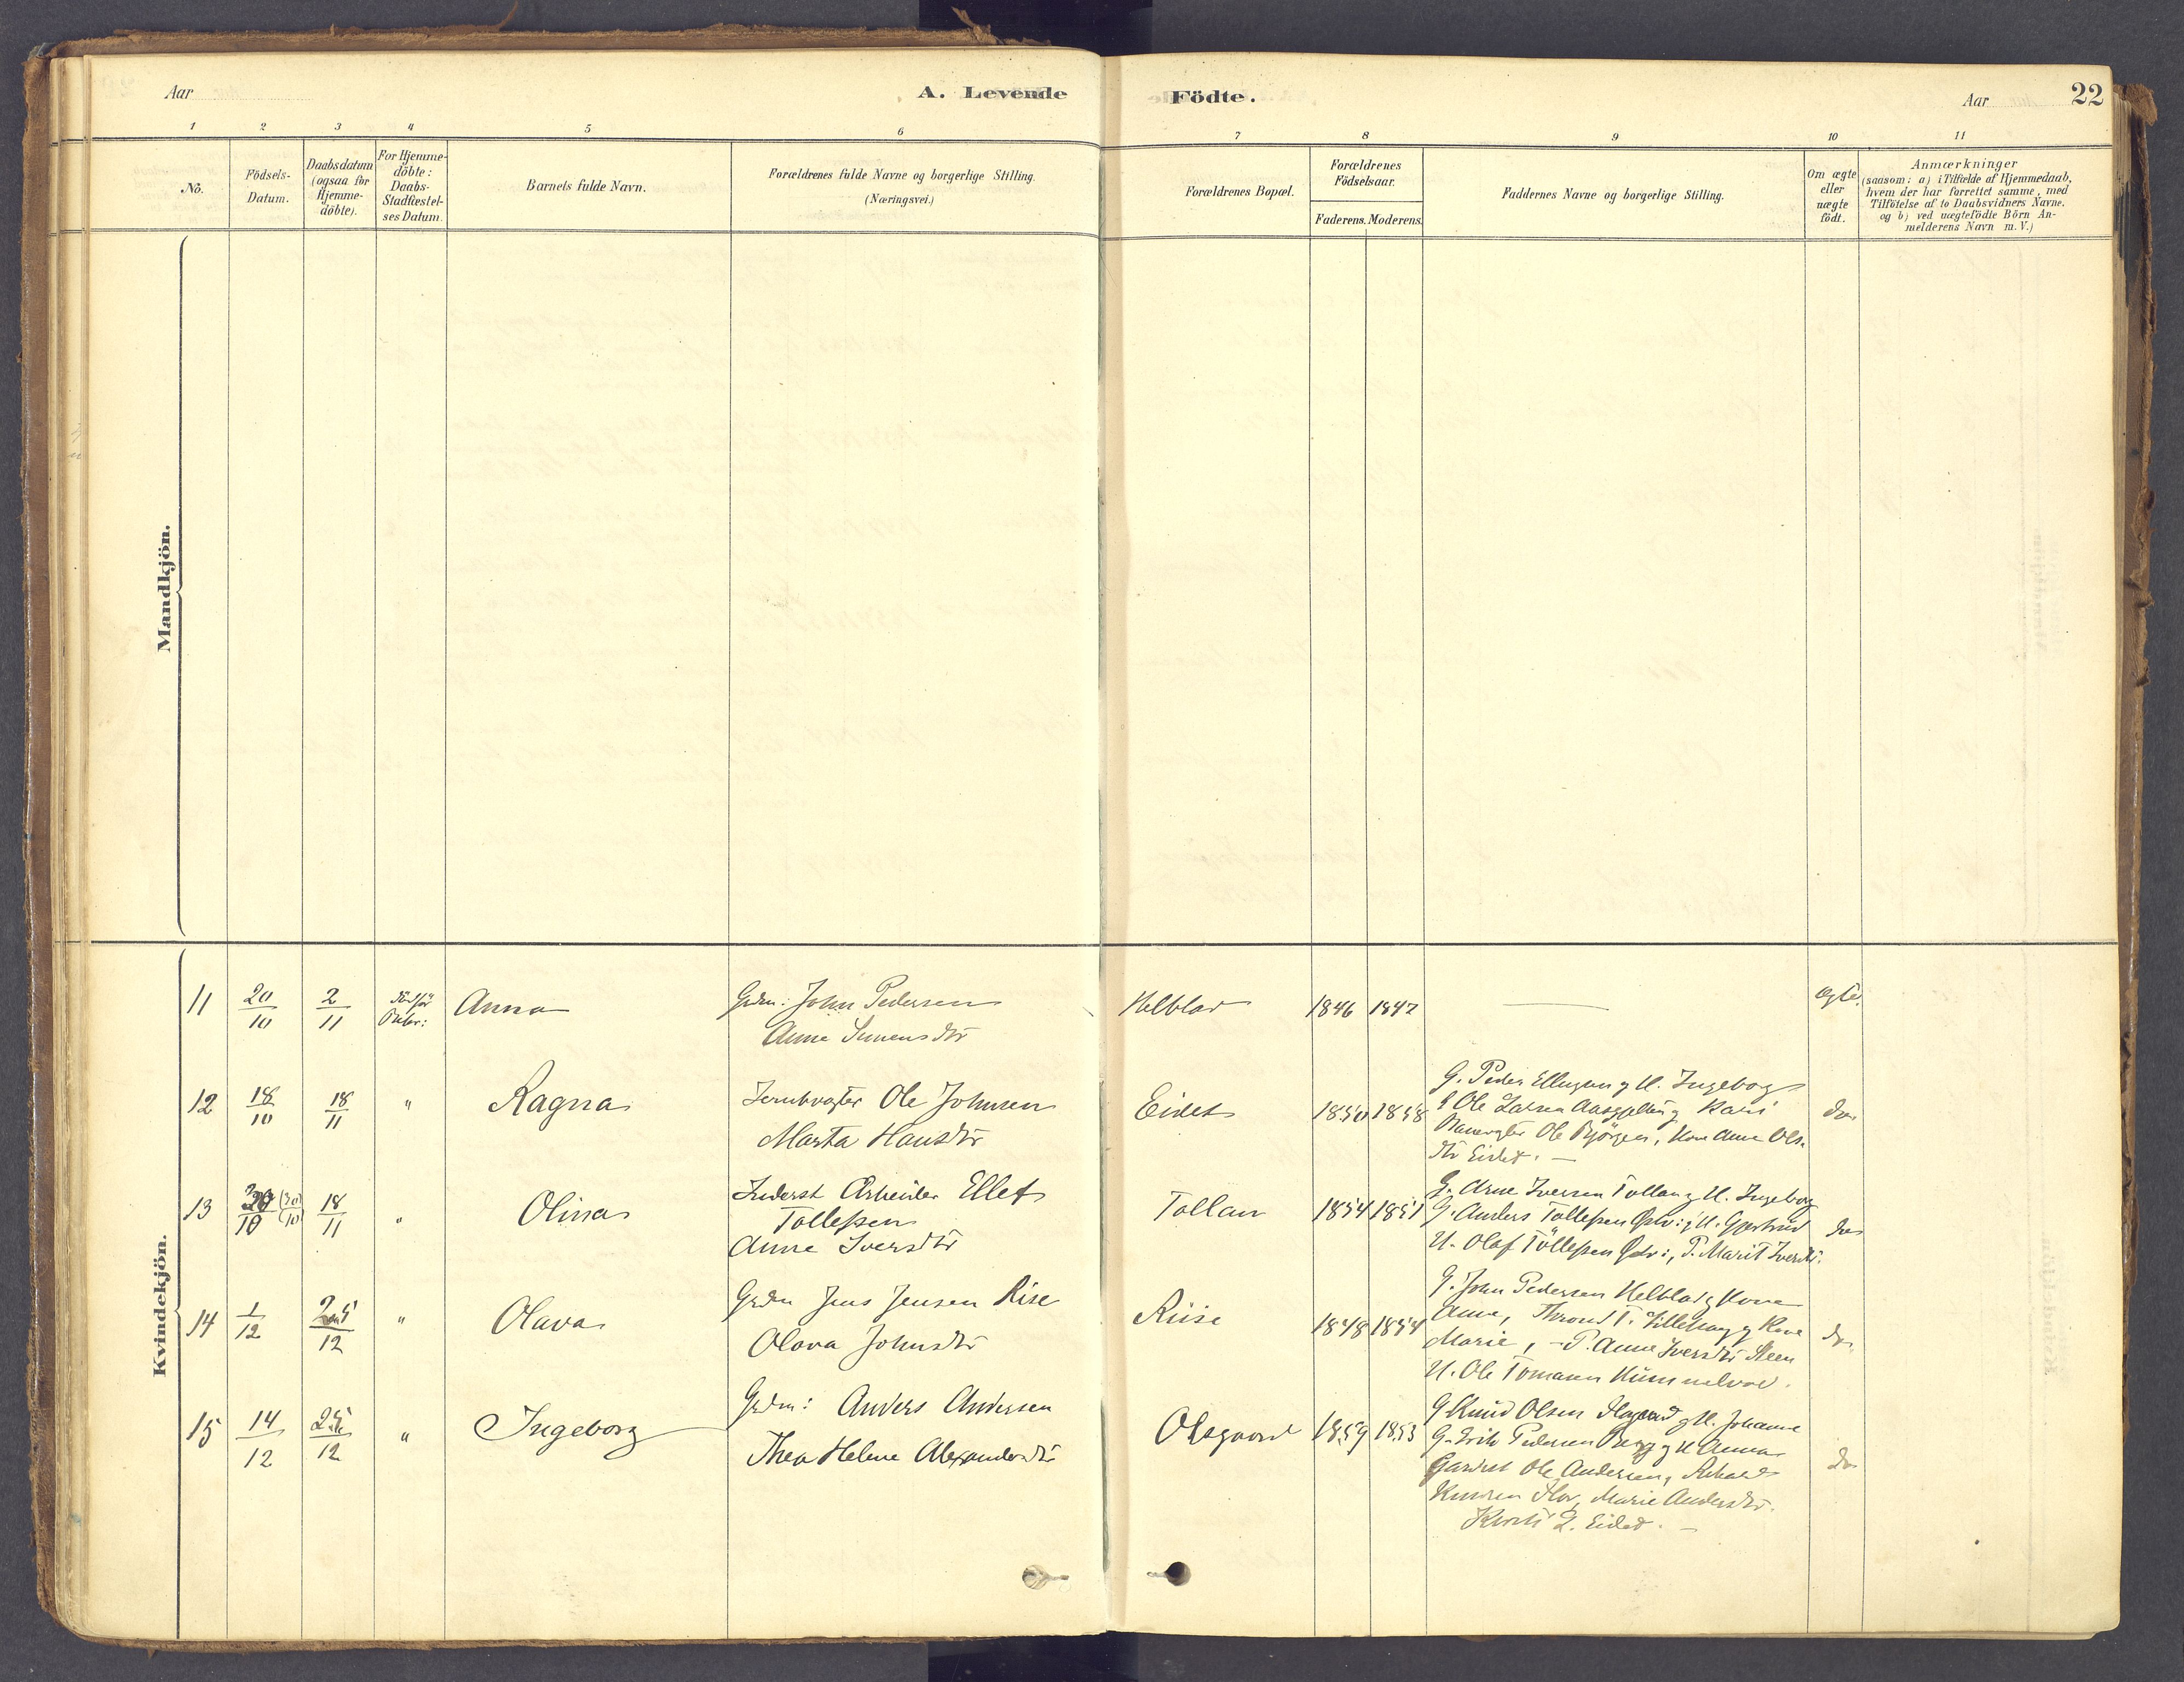 Aar
A. Levende
Födte.
Aar
22
1 2 3 4 5 6 7 8 9 10 11
No.
Födsels-
Datum.
Daabsdatum
(ogsaa for
Hjemme-
döbte).
For Hjemme-
döbte:
Daabs-
Stadfæstel-
ses Datum.
Barnets fulde Navn.
Forældrenes fulde Navne og borgerlige Stilling.
(Næringsvei.)
Forældrenes Bopæl.
Forældrenes
Födselsaar.
Faderens. Moderens.
Faddernes Navne og borgerlige Stilling.
Om ægte
eller
uægte
födt.
Anmærkninger
(saasom: a) i Tilfælde af Hjemmedaab,
hvem der har forrettet samme, med
Tilföielse af to Daabsvidners Navne,
og b) ved uægtefödte Börn An-
melderens Navn m. V.)
Mandkjön.
Kvindekjön.
11 20/10 2/11
Anna
Grdm: John Pedersen
Anne Simensdtr
Helblad 1846 1847
ægte.
12 18/10 18/11 "
Ragna
Ole Johnsen
Marta Hansdtr
Eidet 1850 1858
G. Peder U. Ingeborg
Ole Larsen Kari
Ole Kone Anne Ols
dtr Eidet. —
do
13 (30/10) 18/11 "
Olina
Inderst Arbeider Ellef
Tollefsen
Anne Iversdtr
Tollan 1854 1851
G. Arne Iversen Tollan g U. Ingeborg
G. Anders Tollefsen U. Gjertrud
U. Olaf Tollefsen P. Marit Iversdtr.
do
14 1/12 12 "
Olava
Grdm Jens Jensen Rise
Olava Johnsdtr
Riise 1848 1854
G. John Pedersen Helblad g Kone
Anne, Thrond T. g Kone
Marie, - P. Anne Iversdtr Steen
U. Ole
do
15 14/12 12 "
Ingeborg
Grdm: Anders Andersen
Thea Helene Alexandersdtr
Olsgaard 1859 1853
G Knud Olsen g U. Johanne
G. Erik Pedersen Berg g U Anna
Ole Andersen,
Knudsen Marie Andersdtr.
L. Eidet. —
do